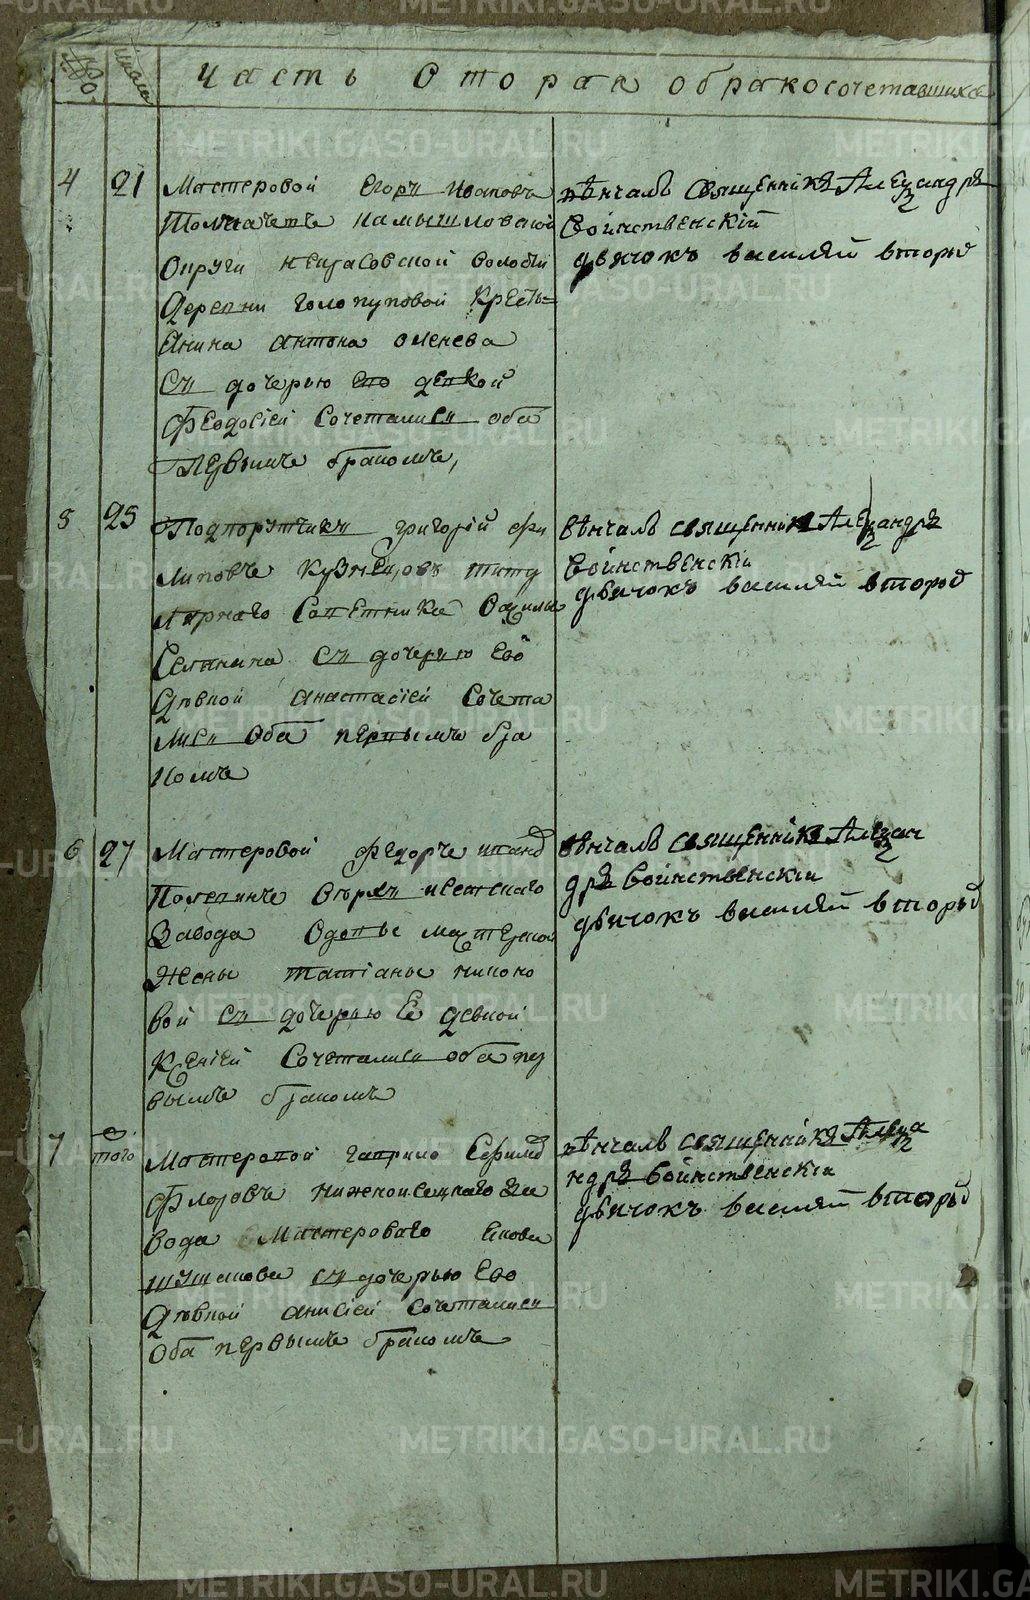 Часть вторая о бракосочетавшихся
4 21 Мастеровой Егоръ Ивановъ
Толмачевъ Камышловской
округи Некрасовской волости
деревни Голопуповой кресть=
янина Антона Оленева
съ дочерью ево девкой
Феодосіей сочетались оба
первымъ бракомъ,
вѣнчалъ священникъ Александръ
Воинственскій
дьячокъ Василей второй
5 25 Подпорутчикъ Григорій Фи
липовъ Кузнецовъ титу
лярнаго советника
съ дочерью Ево
дѣвкой Анастасіей сочета
лись оба первымъ бра
комъ
вѣнчалъ священникъ Александръ
Воинственскій
дьячокъ Василей второй
6 27 Мастеровой Федоръ Иванов
Верхъ Исетскаго
завода вдовы мастерской
жены Татіаны
вой съ дочерью Ее девкой
Ксеніей сочетались оба пер
вымъ бракомъ
вѣнчалъ священникъ Алексан
дръ Воинственскій
дьячокъ Василей второй
7 того Мастеровой Гаврило
Флоровъ Нижнеисецкаго за
вода мастероваго Якова
Шушакова съ дочерью Ево
дѣвкой Анисіей сочетались
оба первымъ бракомъ
вѣнчалъ священникъ Алекса
ндръ Воинственскій
дьячокъ Василей второй
METRIKI.GASO-URAL.RU